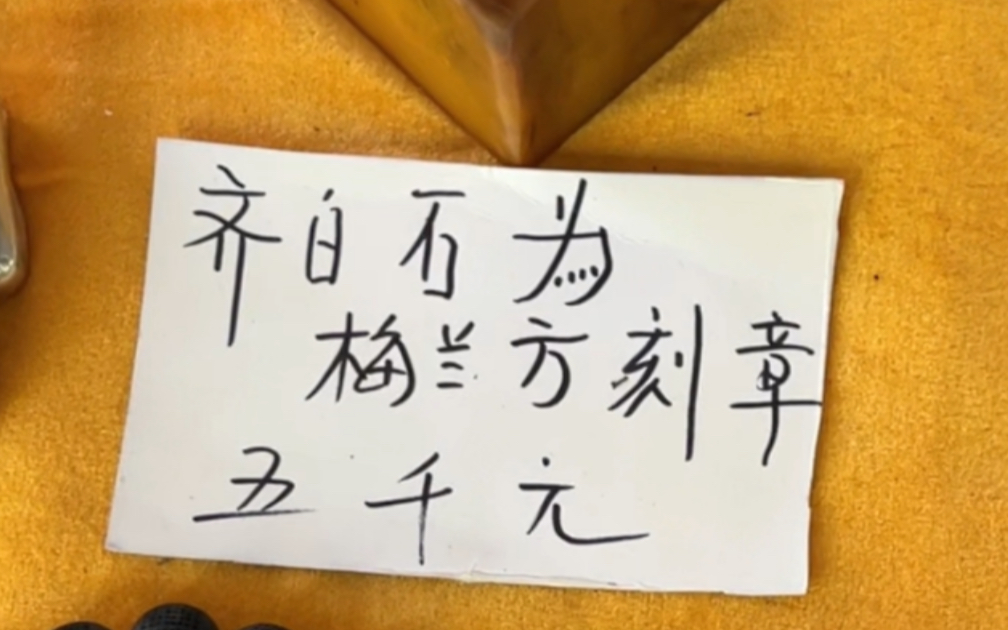 齐白石为
梅兰方刻章
五千元